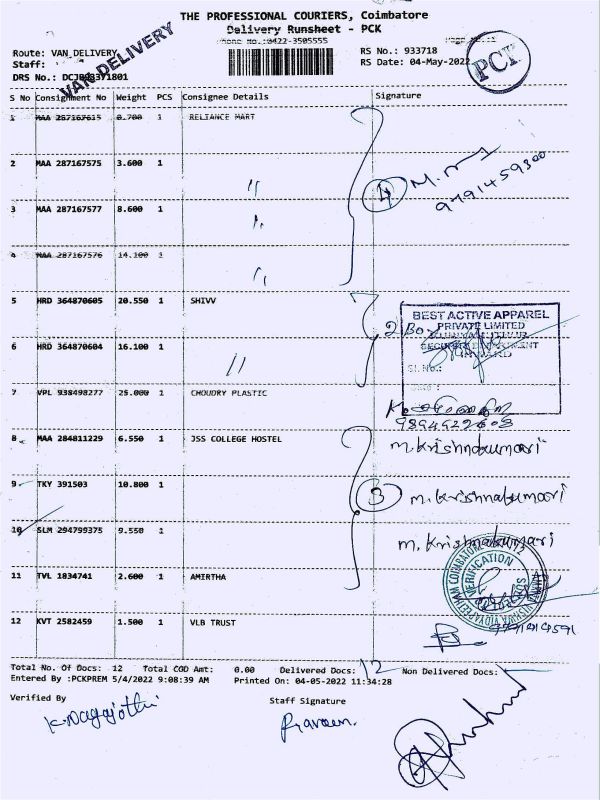 THE PROFESSIONAL COURIERS, Coimbatore
Delivery Runsheet - PCK
Phone No.:0422-3505555
Route: VAN DELIVERY
RS No.: 933718
Staff:
RS Date: 04-May-2022
DRS No.:
VAN DELIVERY
PCK
S No Consignment No Weight PCS Consignee Details Signature
1 MAA 287167615 0.700 1 RELIANCE MART
2 MAA 287167575 3.600 1 "
4 M.
9791459300
3 MAA 287167577 8.600 1 "
4 MAA 287167576 14.100 1 "
5 HRD 364870605 20.550 1 SHIVV
BEST ACTIVE APPAREL
PRIVATE LIMITED
6 HRD 364870604 16.100 1 "
INWARD
Sl.No.:
7 VPL 938498277 25.000 1 CHOUDRY PLASTIC
8 MAA 284811229 6.550 1 JSS COLLEGE HOSTEL
m.krishnakumari
9 TKY 391503 10.800 1
3 m.krishnakumari
10 SLM 294799375 9.550 1
m.krishnakumari
11 TVL 1834741 2.600 1 AMIRTHA
VERIFICATION
12 KVT 2582459 1.500 1 VLB TRUST
Total No. Of Docs: 12 Total COD Amt: 0.00 Delivered Docs: 12 Non Delivered Docs:
Entered By :PCKPREM 5/4/2022 9:08:39 AM Printed On: 04-05-2022 11:34:28
Verified By
Staff Signature
K.Nagajothi
Praveen.